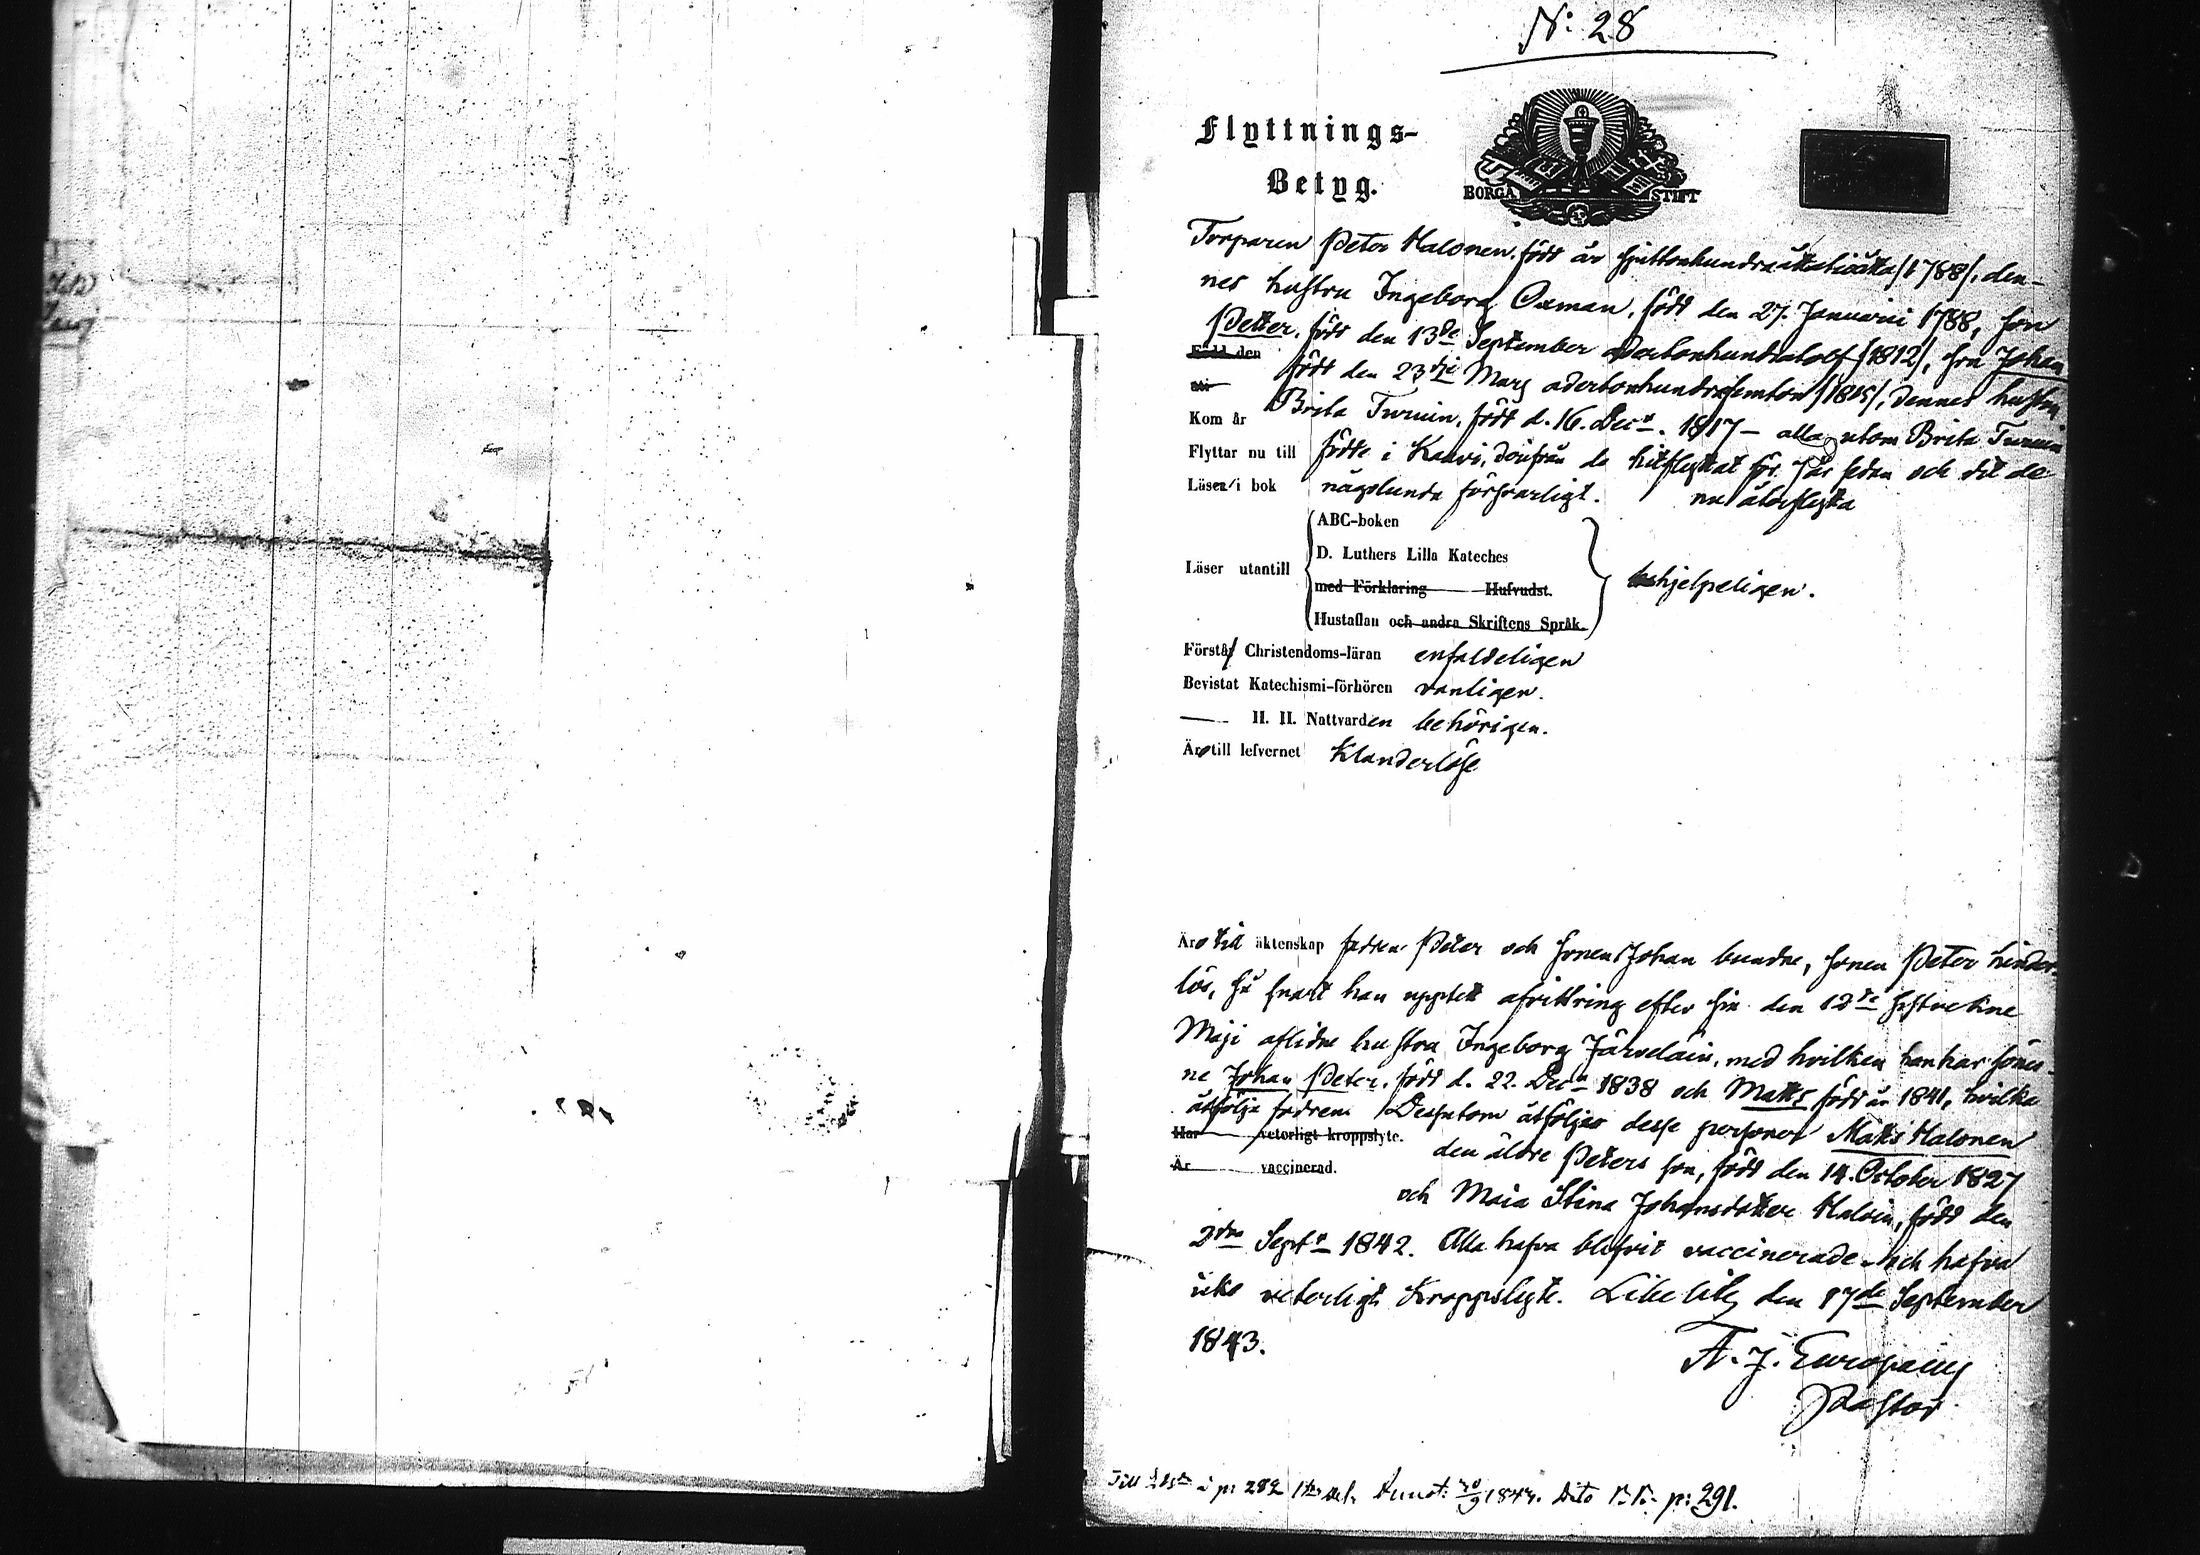 N: 28
Flyttnings-
Betyg.
BORGÅ STIFT
Torparen Peter Halonen, född år sjuttonhundraåttatioåtta /1788/, den-
nes hustru Ingeborg Oxman, född den 27. Januarii 1788, son
Petter, född den 13de September adertonhundratolf /1812/, son Johan
Född den
född den 23dje Mars adertonhundrafemton /1815/, dennes hustru
Kom år
Brita Turuin, född d. 16. Decr. 1817 — alla utom Brita Turuin
Flyttar nu till födde i Kaavi, därifrån de hitflyttat för 7 år sedan och dit de
nu återflytta
Läsa i bok någolunda försvarligt.
Läser utantill
ABC-boken
D. Luthers Lilla Kateches
med Förklaring Hufvudst.
Hustaflan och andra Skriftens Språk.
hjelpeligen.
Förstå Christendoms-läran enfaldeligen
Bevistat Katechismi-förhören vanligen.
— H. H. Nattvarden behörigen.
Äro till lefvernet Klanderlöse
Äro till äktenskap fadren Peter och sonen Johan bundne, sonen Peter hinder-
lös, så snart han upptett afvittring efter sin den 12te sistvekne
Maji aflidne hustru Ingeborg Järveläin, med hvilken han har söner-
ne Johan Peter, född d. 22. Decr 1838 och Matts född år 1841, hvilka
åtfölja fadren. Dessutom åtföljer desse personer Matts Halonen
Har veterligt kroppslyte.
den äldre Peters son, född den 14. October 1827
Är vaccinerad.
och Maia Stina Johansdotter Haloin, född den
2dra Septr 1842. Alla hafva blifvit vaccinerade och hafva
icke veterligt Kroppslyte. Libelitz den 17de September
1843.
A. J. Europaeus
Pastor
Till p: 282 Annot: 1844. Dito p: 291.